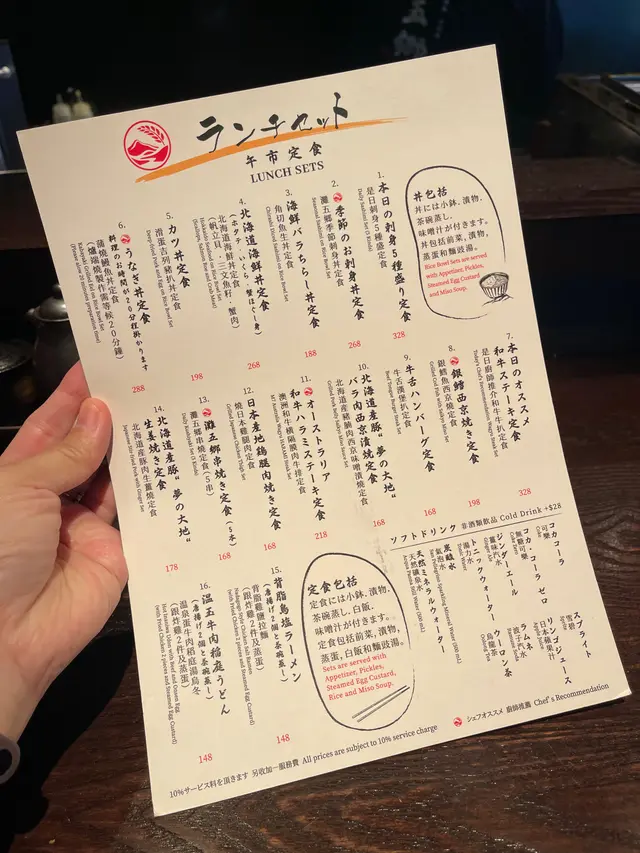 ランチセット
午市定食
LUNCH SETS
丼包括
丼には小鉢、漬物、
茶碗蒸し、
味噌汁が付きます。
丼包括前菜、漬物、
蒸蛋和麵豉湯。
Rice Bowl Sets are served
with Appetizer, Pickles,
Steamed Egg Custard,
and Miso Soup.
1.
本日の刺身5種盛り定食
是日刺身5種盛定食
328
2.
季節のお刺身丼定食
灘五郷季節刺身丼定食
268
3.
海鮮バラちらし丼定食
角切魚生丼定食
188
4.
北海道海鮮丼定食
(ホタテ・いくら、蟹ほぐし身)
北海道海鮮丼定食
(帆立貝、三文魚籽、蟹肉)
268
5.
カツ丼定食
滑蛋吉列豬扒丼定食
198
6.
うなぎ丼定食
料理のお時間が20分程掛かります
蒲燒鰻魚丼定食
(爐端燒製作需等候20分鐘)
288
7.
本日のオススメ
和牛ステーキ定食
是日廚師推介和牛牛扒定食
328
8.
銀鱈西京焼き定食
銀鱈魚西京燒定食
198
9.
牛舌ハンバーグ定食
牛舌漢堡扒定食
168
10.
北海道産豚"夢の大地"
バラ肉西京漬焼定食
北海道産豬腩肉西京味噌漬燒定食
168
11.
オーストラリア
和牛ハラミステーキ定食
澳洲和牛橫隔膜肉牛排定食
218
12.
日本産地鶏腿肉焼き定食
燒日本雞腿肉定食
168
13.
灘五郷串焼き定食(5本)
灘五鄉串燒定食(5串)
168
14.
北海道産豚"夢の大地"
生姜焼き定食
北海道産豚肉生薑燒定食
178
15.
背脂鳥塩ラーメン
(唐揚げ2個と茶碗蒸し)
背脂雞鹽拉麵
(跟炸雞2件及蒸蛋)
148
16.
温玉牛肉稲庭うどん
(唐揚げ2個と茶碗蒸し)
溫泉蛋牛肉稻庭湯烏冬
(跟炸雞2件及蒸蛋)
148
定食包括
定食には小鉢、漬物、
茶碗蒸し、白飯、
味噌汁が付きます。
定食包括前菜、漬物、
蒸蛋、白飯和麵豉湯。
Sets are served with
Appetizer, Pickles,
Steamed Egg Custard,
Rice and Miso Soup.
ソフトドリンク 非酒類飲品 Cold Drink +$28
コカコーラ
可樂
Coke
コカ・コーラ ゼロ
無糖可樂
ジンジャーエール
薑味汽水
トニックウォーター
湯力水
炭酸水
氣泡水
天然ミネラルウォーター
天然礦泉水
スプライト
雪碧
Sprite
リンゴジュース
日本蘋果汁
ラムネ
波子汽水
ウーロン茶
烏龍茶
Oolong Tea
シェフオススメ 廚師推薦 Chef's Recommendation
10%サービス料を頂きます 另收加一服務費 All prices are subject to 10% service charge